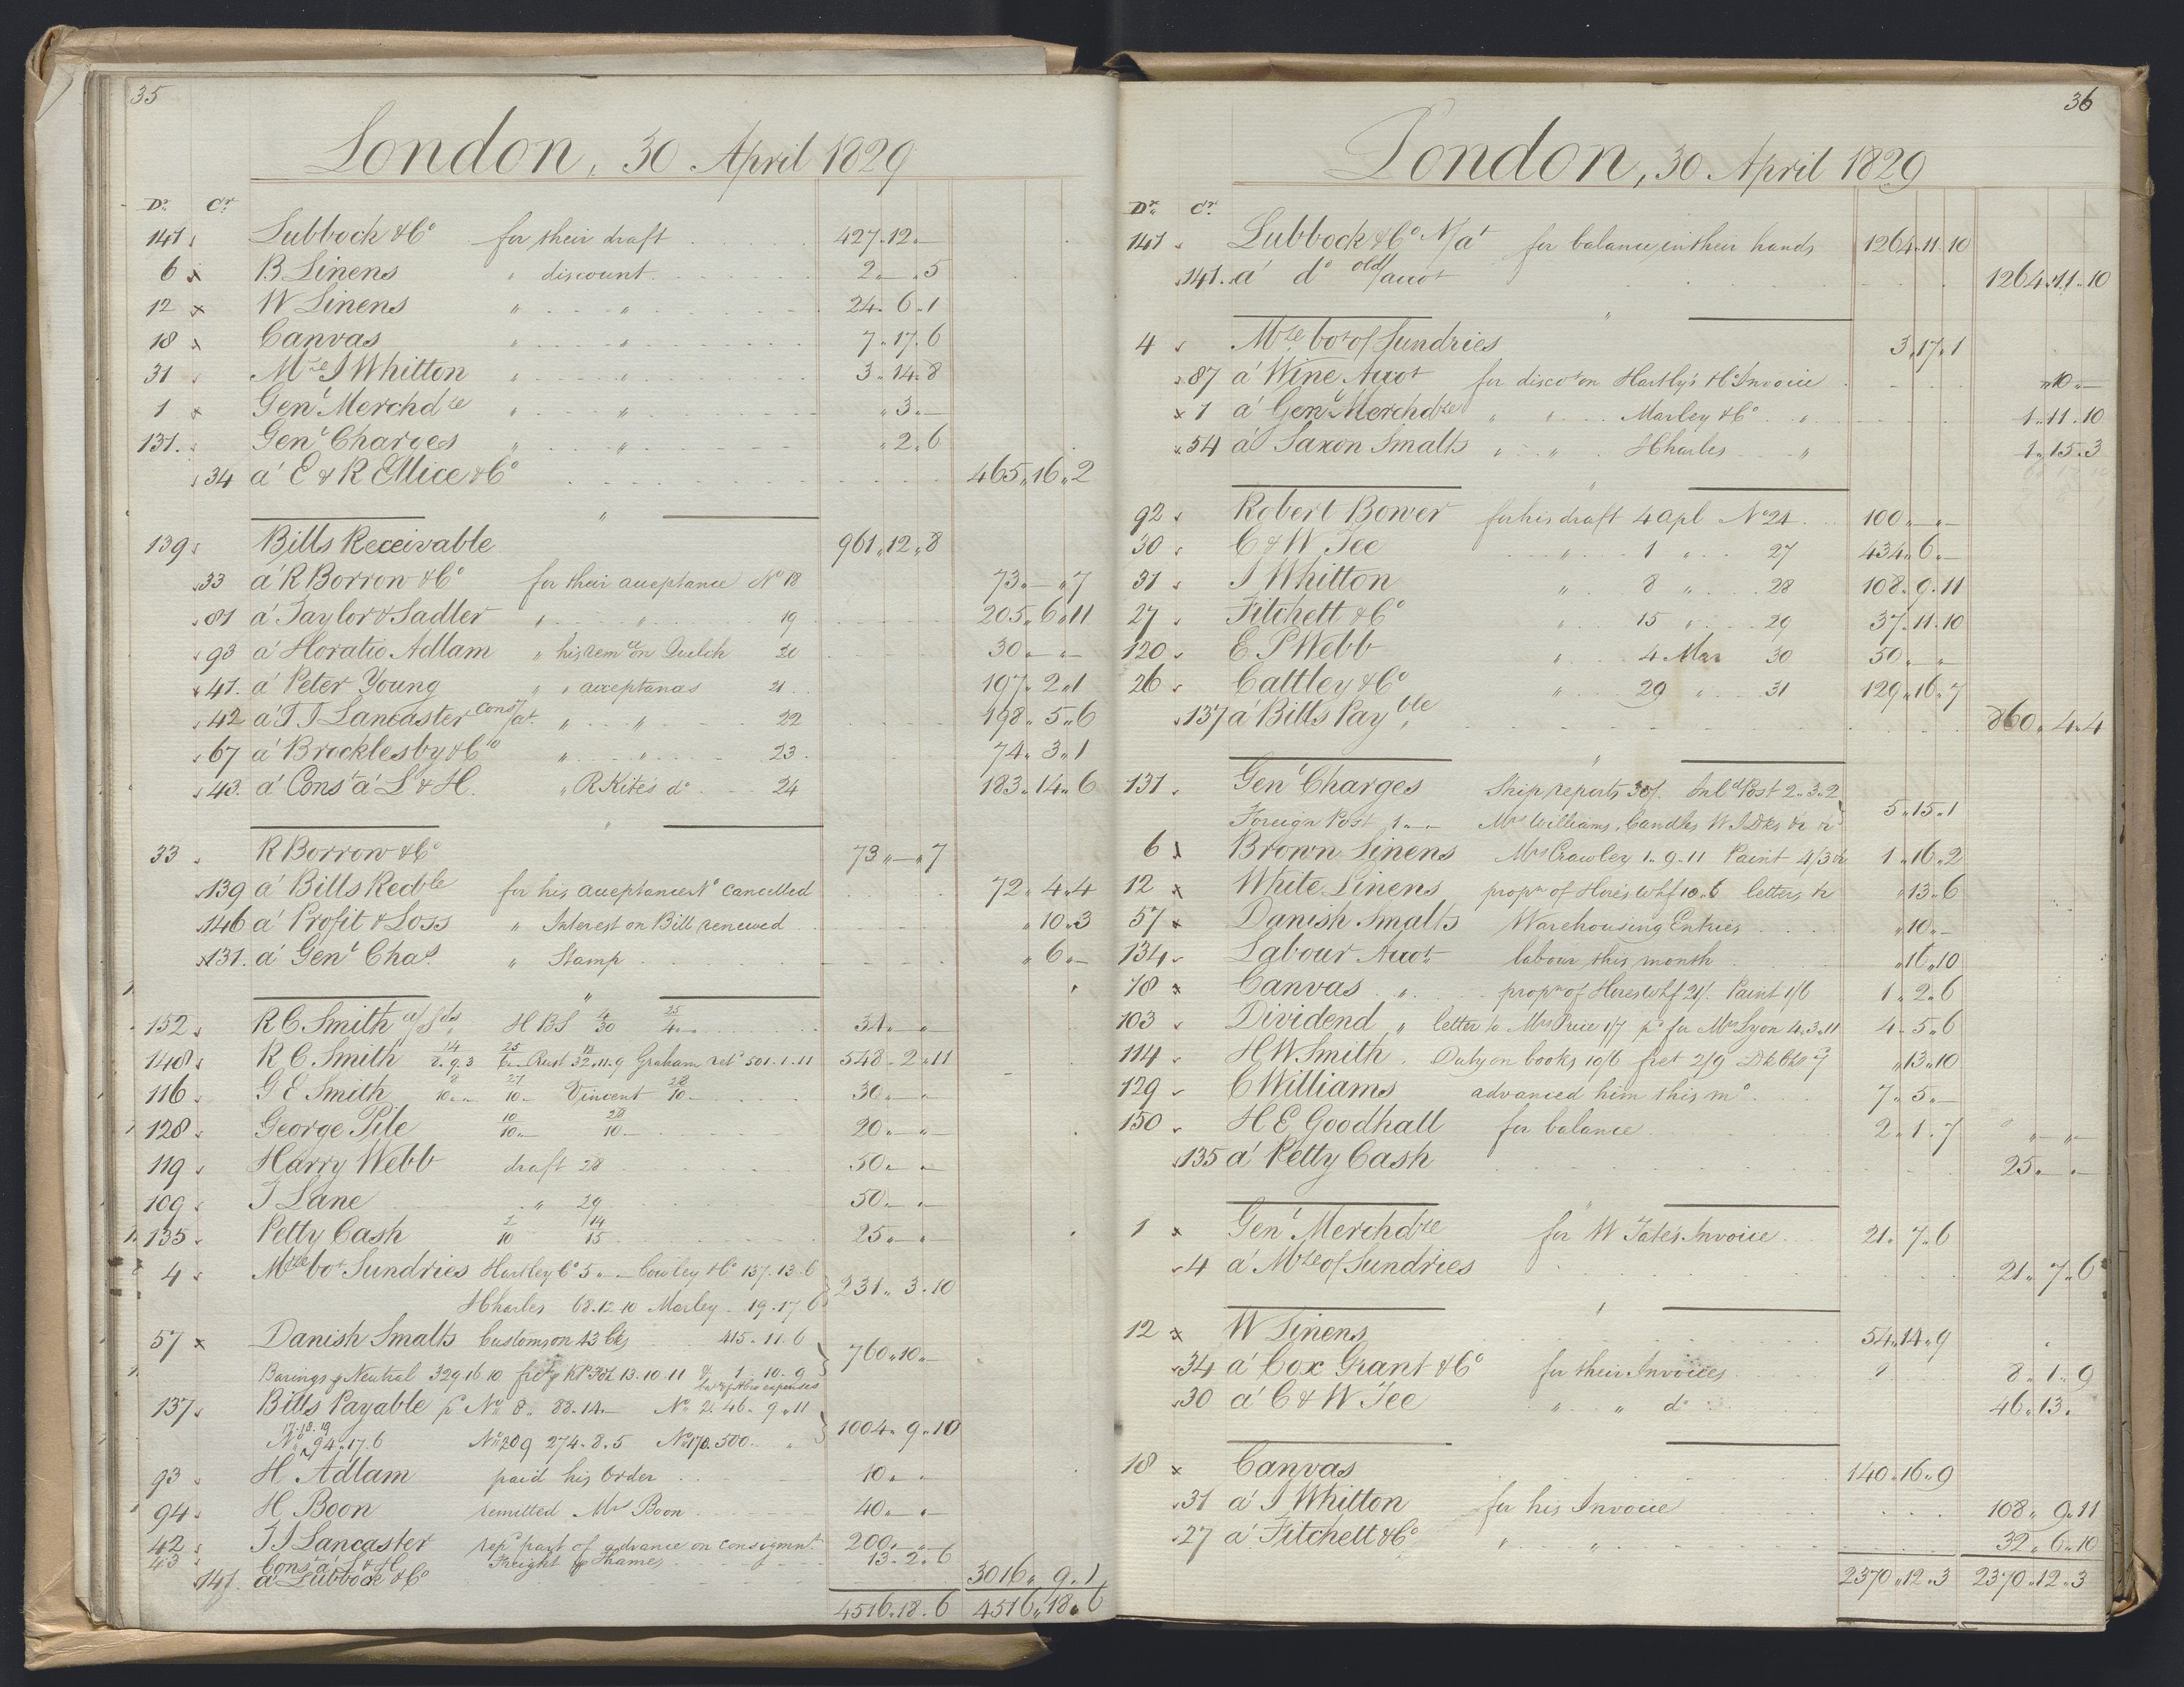 35
London, 30 April 1829
Dr. Cr.
141 Lubbock & Co for their draft 427.12.—
6 x B Linens " discount 2.—.5
12 x W Linens " " 24.6.1
18 x Canvas " " 7.17.6
31 Mrse J Whitton " " 3.14.8
1 x Genl Merchdze " " " 3.—
131. Genl Charges " " " 2.6
34 a' E & R Ellice & Co 465.16.2
139 Bills Receivable 961.12.8
33 a' R Borrow & Co for their acceptance No 18 73.—.7
81 a' Taylor & Sadler " " 19 205.6.11
93 a' Horatio Adlam " his rem ce on Quelch 20 30.—.—
41. a' Peter Young " " acceptances 21 197.2.1
42 a' T J Lancaster Cons/at. " " 22 198.5.6
67 a' Brocklesby & Co " " 23 74.3.1
43. a' Cons a' L & H. " R Kite's do 24 183.14.6
33 R Borrow & Co 73.—.7
139 a' Bills Recble for his acceptance No cancelled 72.4.4
146 a' Profit & Loss " Interest on Bill renewed " 10.3
131. a' Genl Chas " Stamp " 6.—
152 R C Smith H B S 4/30 25/4.. 34.—.—
148 R C Smith 14/8.9.3 Rust 32.11.9 Graham ret 501.1.11 548.2.11
116 G E Smith 8/10.. 21/10.. Vincent 28/10.. 30.—.—
128 George Pile 10/10.— 28/10.— 20.—.—
119 Harry Webb draft 28 50.—.—
109 J Lane " 29 50.—.—
135 Petty Cash 2/10 14/15 25.—.—
4 Mze bot Sundries Hartley Co 5.—.— Cowley & Co 137.13.6
231.3.10
H Charles 68.12.10 Marley 19.17.6
57 x Danish Smalts Customs on 43 Cks 415.11.6
760.10.—
Barings p Neutral 329.16.10 13.10.11 & 1.10.9
137 Bills Payable p No 8. 88.14.— No 2. 46.9.11
17.18.19
1004.9.10
No 94.17.6 No 209 274.8.5 No 170.500.
93 H Adlam paid his order 10.—.—
94 H Boon remitted Mrs Boon 40.—.—
42 T J Lancaster rep part of advance on consignmt 200.—.—
43 Cons a' L & H Freight p Thames 13.2.6
141. a' Lubbock & Co 3016.9.1
4516.18.6 4516.18.6
36
London, 30 April 1829
Dr. Cr.
141 Lubbock & Co N/at for balance in their hands 1264.11.10
141. a' do old/accot 1264.11.10
4 Mze bot of Sundries 3.17.1
87 a' Wine Accot for discot on Hartly's & Co Invoice " 10.—
x 1 a' Genl Merchdze " " Marley & Co " 1.11.10
x 54 a' Saxon Smalts " " H Charles " 1.15.3
92 Robert Bower for his draft 4 Apl No 24 100.—.—
30 C & W Tee " 1 " 27 434.6.—
31 J Whitton " 8 " 28 108.9.11
27 Fitchett & Co " 15 " 29 37.11.10
120 E P Webb " 4 Mar 30 50.—.—
26 Cattley & Co " 29 " 31 129.16.7
137 a' Bills Payble 860.4.4
131 Genl Charges Ship reports 30/. Inld Post 2.3.2
5.15.1
Foreign Post 1.—.— Mrs Williams, Candles W I Dks &c &c
6 x Brown Linens Mrs Crawley 1.9.11 Paint 4/3 &c 1.16.2
12 x White Linens propn of Hores Whf 10.6 letters &c " 13.6
57 x Danish Smalts Warehousing Entries " 10.—
134 Labour Accot labour this month " 16.10
18 x Canvas " propn of Hores Whf 21/. Paint 1/6 1.2.6
103 Dividend " letter to Mrs Price 1/7 pd for Mrs Lyon 4.3.11 4.5.6
114 H W Smith. Duty on books 10/6 fret 2/9 " 13.10
129 C Williams advanced him this mo 7.5.—
150 H E Goodhall for balance 2.1.7
135 a' Petty Cash 25.—.—
1 x Genl Merchdze for W Tate's Invoice 21.7.6
4 a' Mze of Sundries 21.7.6
12 x W Linens 54.14.9
34 a' Cox Grant & Co for their Invoices 8.1.9
30 a' C & W Tee " " do 46.13.
18 x Canvas 140.16.9
31 a' J Whitton for his Invoice 108.9.11
27 a' Fitchett & Co " " 32.6.10
2370.12.3 2370.12.3